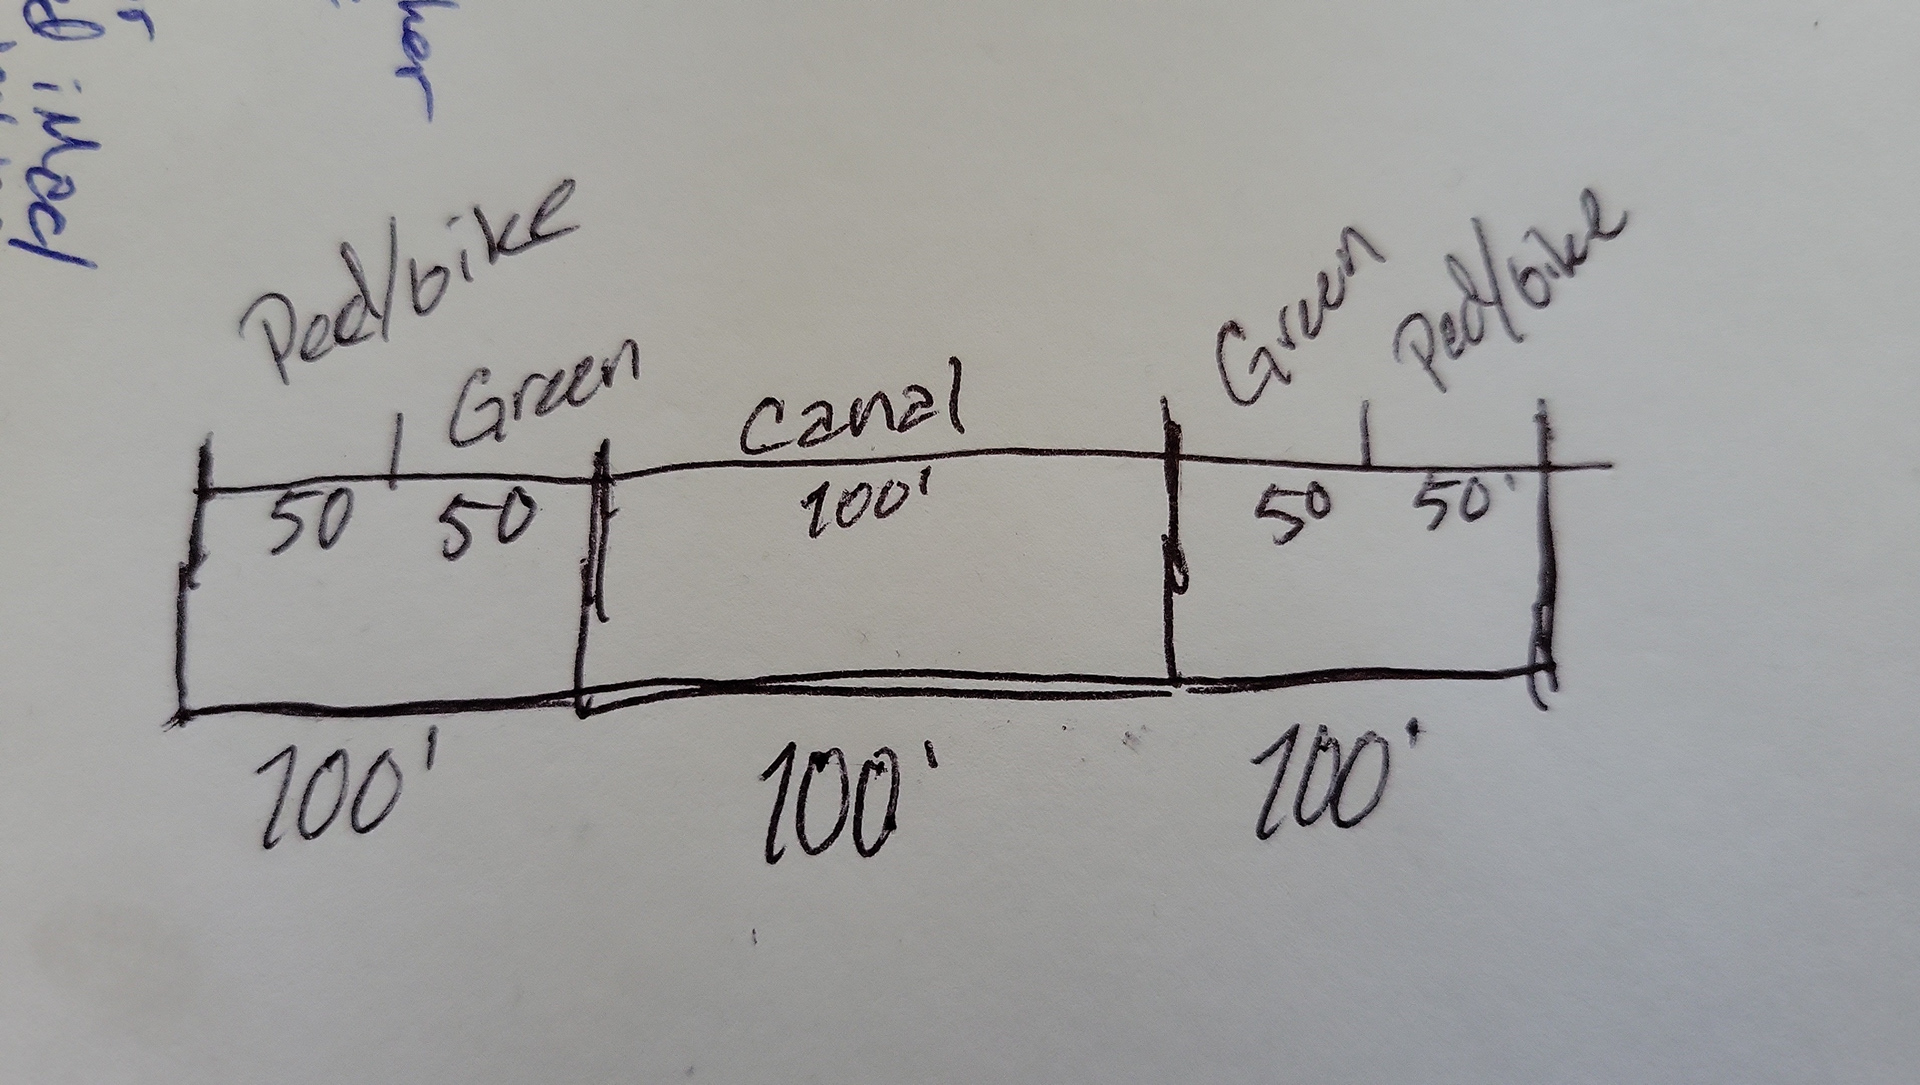 her
Ped/bike
Green
Canal
Green
Ped/bike
50
50
100'
50
50'
100'
100'
100'